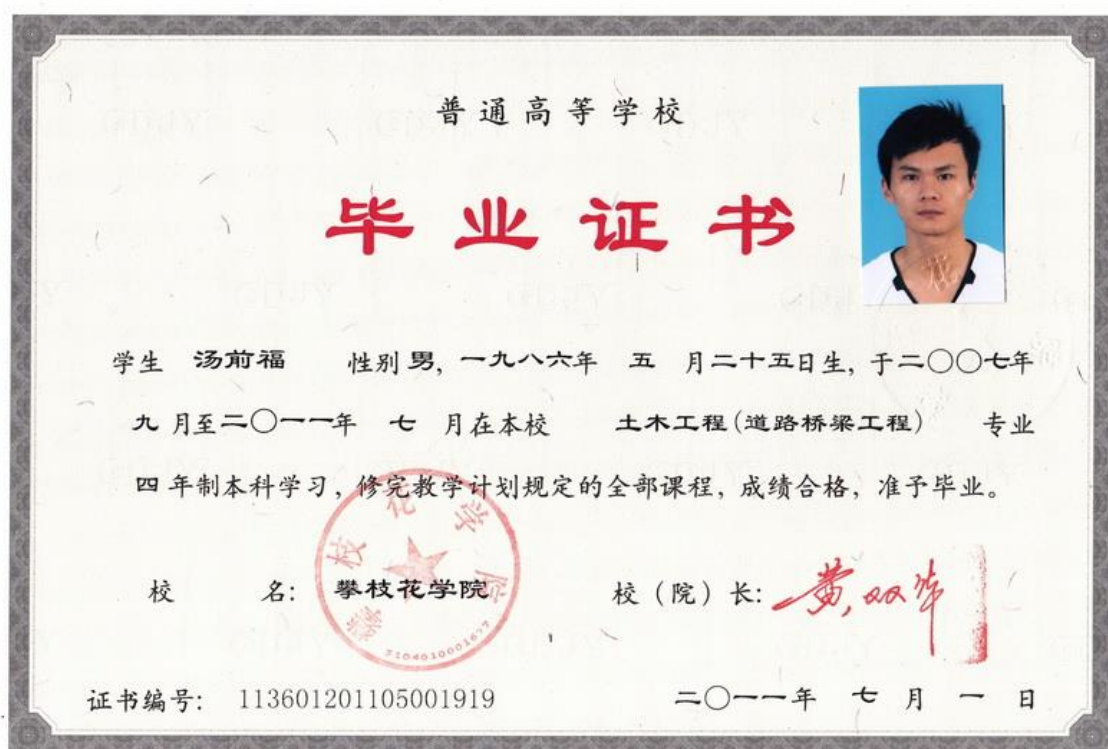 普通高等学校
毕业证书
学生 汤前福 性别 男, 一九八六年 五 月二十五日生, 于二〇〇七年
九 月至二〇一一年 七 月在本校 土木工程(道路桥梁工程) 专业
四 年制本科学习, 修完教学计划规定的全部课程, 成绩合格, 准予毕业。
校 名: 攀枝花学院 校(院)长: 黄双华
攀枝花学院
5104010001677
证书编号: 113601201105001919 二〇一一年 七 月 一 日